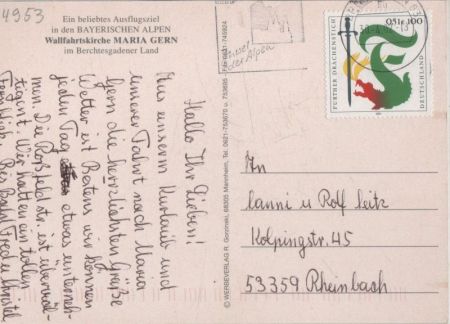 4953
Ein beliebtes Ausflugsziel
in den BAYERISCHEN ALPEN
Wallfahrtskirche MARIA GERN
im Berchtesgadener Land
Hallo Ihr Lieben!
Aus unserem Kurlaub und
unserer Fahrt nach Maria
Gern die herzlichsten Grüße
Wetter ist Bestens wir können
jeden Tag etwas unterneh-
men. Die Roßfeldstr. ist überwäl-
tigend. Wir hatten ein tollen
Bis bald Fred u Christel
© WERBEVERLAG R. Goronski, 68305 Mannheim, Tel. 0621-753670 u. 753695 · Fax 0621-746924
der Alpen
0,51€ 100
FURTHER DRACHENSTICH
DEUTSCHLAND
An
Hanni u Rolf Seitz
Kolpingstr. 45
53359 Rheinbach